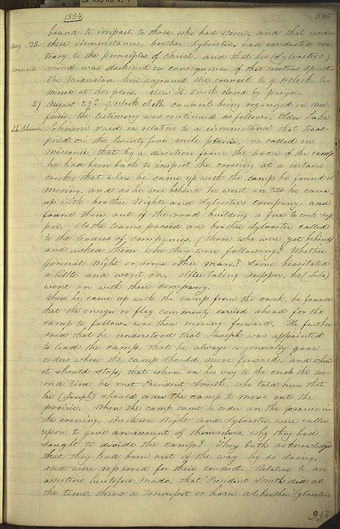 1834.
bound to impart to those who had some, and that under
these circumstances, brother Sylvester had conducted con
trary to the principles of Christ, and that his (Sylvester's)
mind was darkened in consequence of this
The Moderator then adjourned the council to 9 o'clock to-
morrow at her place. Closed by prayer.
29 August 29th 9 o'clock council being organized in due
form, the testimony was continued as follows, Elder Luke
Johnson said in relation to a circumstance that trans-
pired on the twenty five mile prairie, so called in
Missouri, that by a direction from the head of the camp,
he had been back to inspect the crossing at a certain
creek, that when he came up with the camp he found it
moving, and as he was behind he went on till he came
up with brother Wight's and Sylvester's company, and
found them out of the road building a fire to cook sup
per. As the teams passed on brother Sylvester called
to the leaders of companies, (those who were yet behind
and asked them who they were following? Whether
General Wight or some other man? Some hesitated
a little and went on. After taking supper, he (Luke)
went on with their company.
When he came up with the camp from the creek, he found
that the ensign or flag commonly carried ahead for the
camp to follow was then moving forward. He further
said that he understood that Joseph was appointed
to lead the camp, that he always or generally gave
orders when the camp should move forward, and when
it should stop, that when on his way to the creek the sec-
ond time he met President Smith who told him that
he (Joseph) should order the camp to move onto the
prairie. When the camp came to order on the prairie in
the evening, brethren Wight and Sylvester were called
upon to give an account of themselves, why they had
sought to divide the camp? They both acknowledged
that they had been out of the way by so doing,
and were reproved for their conduct. Relative to an
assertion heretofore made, that President Smith did at
the time throw a trumpet or horn at brother Sylvester